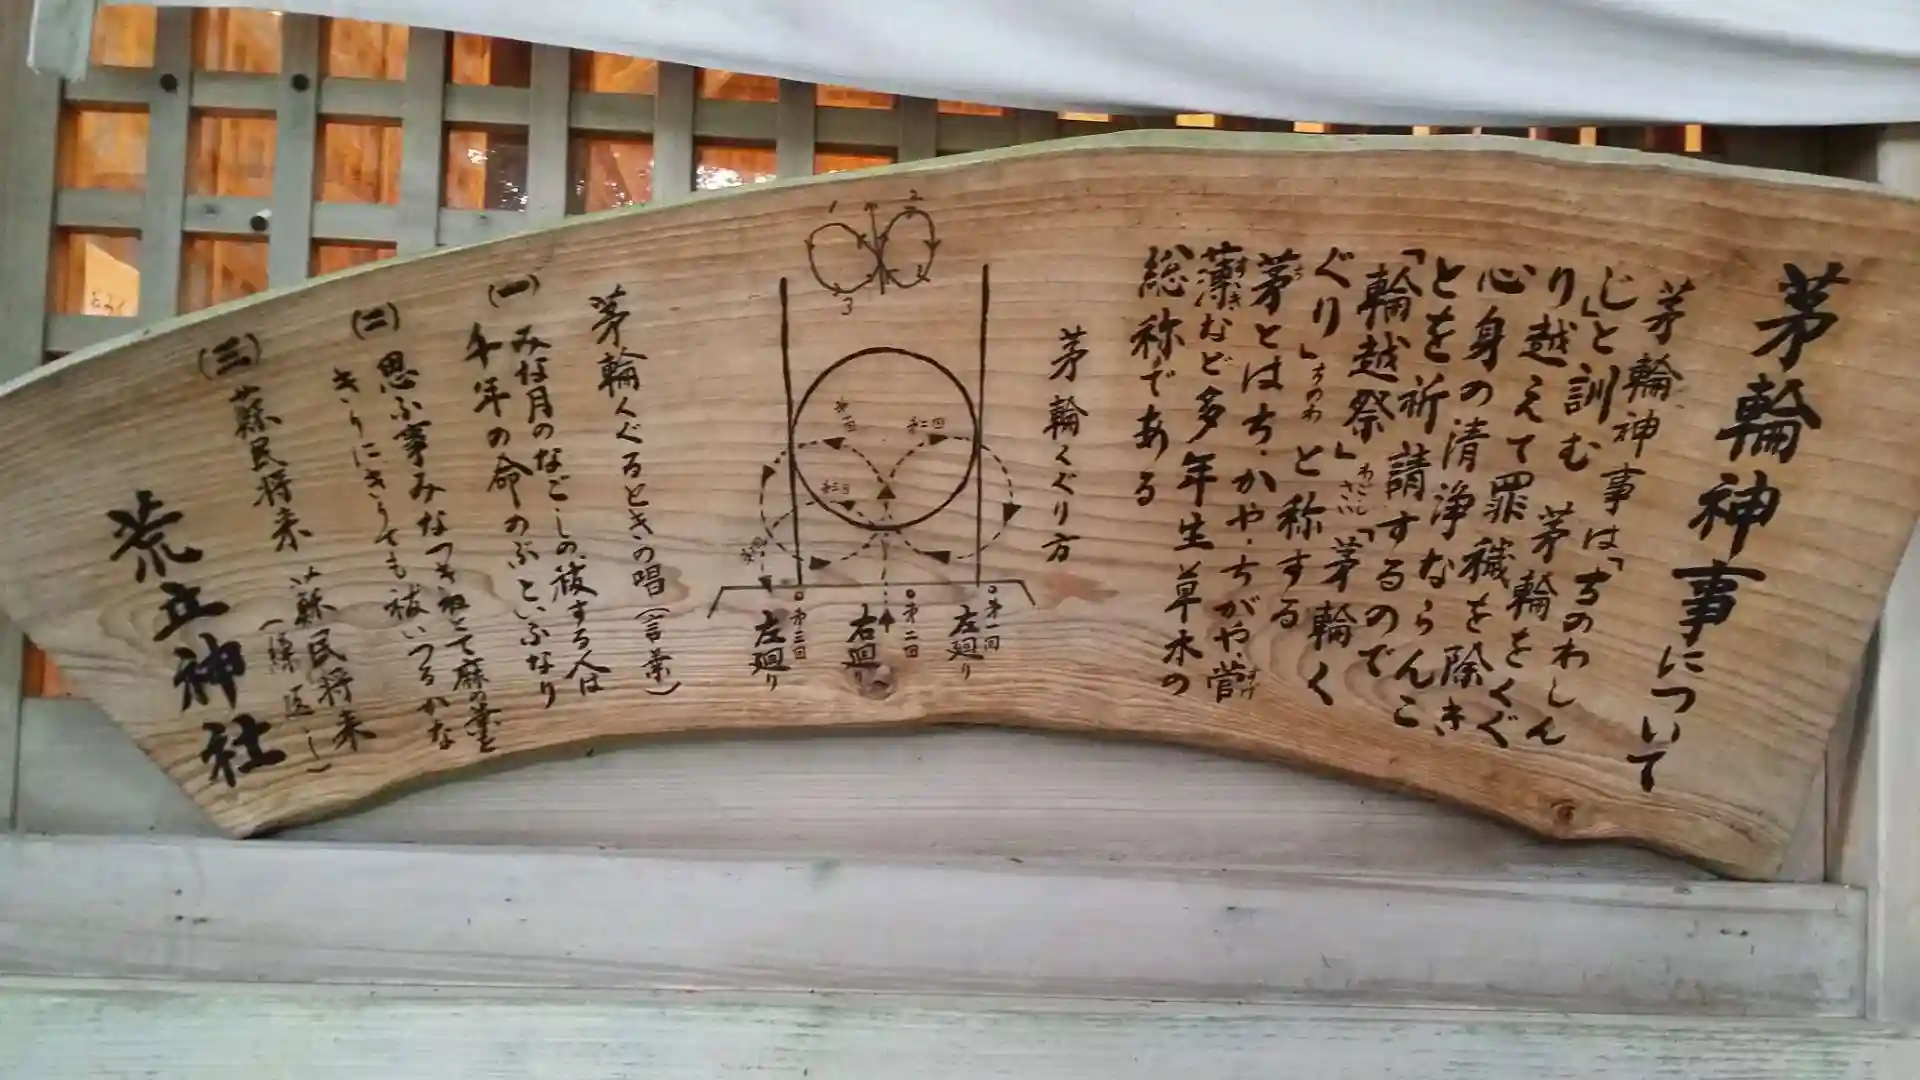 茅輪神事について
茅輪神事は「ちのわしん
じ」と訓む 茅輪をくぐ
り越えて罪穢を除き
心身の清浄ならんこ
とを祈請するので
「輪越祭」わごしさい「茅輪く
ぐり」ちのわと称する
茅とはち・かや・ちがや・菅すげ
薄すすきなど多年生草木の
総称である
茅輪くぐり方
1
2
3
第一回
第二回
第三回
第一回
左廻り
第二回
右廻り
第三回
左廻り
茅輪くぐるときの唱(言葉)
(一)
みな月のなごしの祓する人は
千年の命のぶといふなり
(二)
思ふ事みなつきねとて麻の葉を
きりにきりても祓いつるかな
(三)
蘇民将来 蘇民将来
荒立神社